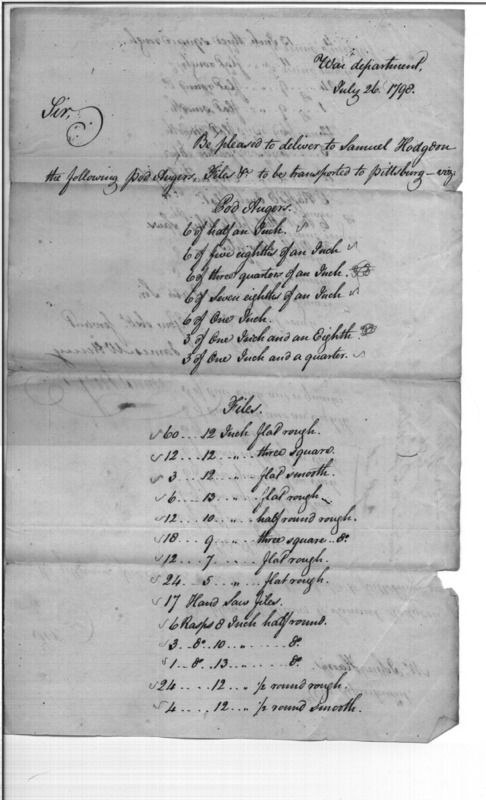 War department,
July 26. 1798.
Sir,
Be pleased to deliver to Samuel Hodgdon
the following Pod Augers, Files &c to be transported to Pittsburg – viz
Pod Augers.
6 of half an Inch.
6 of five eighths of an Inch
6 of three quarters of an Inch.
6 of Seven eighths of an Inch
6 of One Inch.
3 of One Inch and an Eighth.
3 of One Inch and a quarter.
Files.
60 .... 12 Inch flat rough.
12 .... 12 .. " .. three square.
3 .... 12 .. " .. flat smooth.
6 .... 13 .. " .. flat rough
12 .... 10 .. " .. half round rough.
18 .... 9 .. " .. three square .. do.
12 .... 7 .. " .. flat rough.
24 .... 5 .. " .. flat rough.
17 Hand Saw files.
6 Rasps 8 Inch half round.
3 .. do. 10 .. " ....... do.
1 .. do. 13 .. " ....... do.
24 ..... 12 .. " ½ round rough.
4 ..... 12 .. " ½ round smooth.